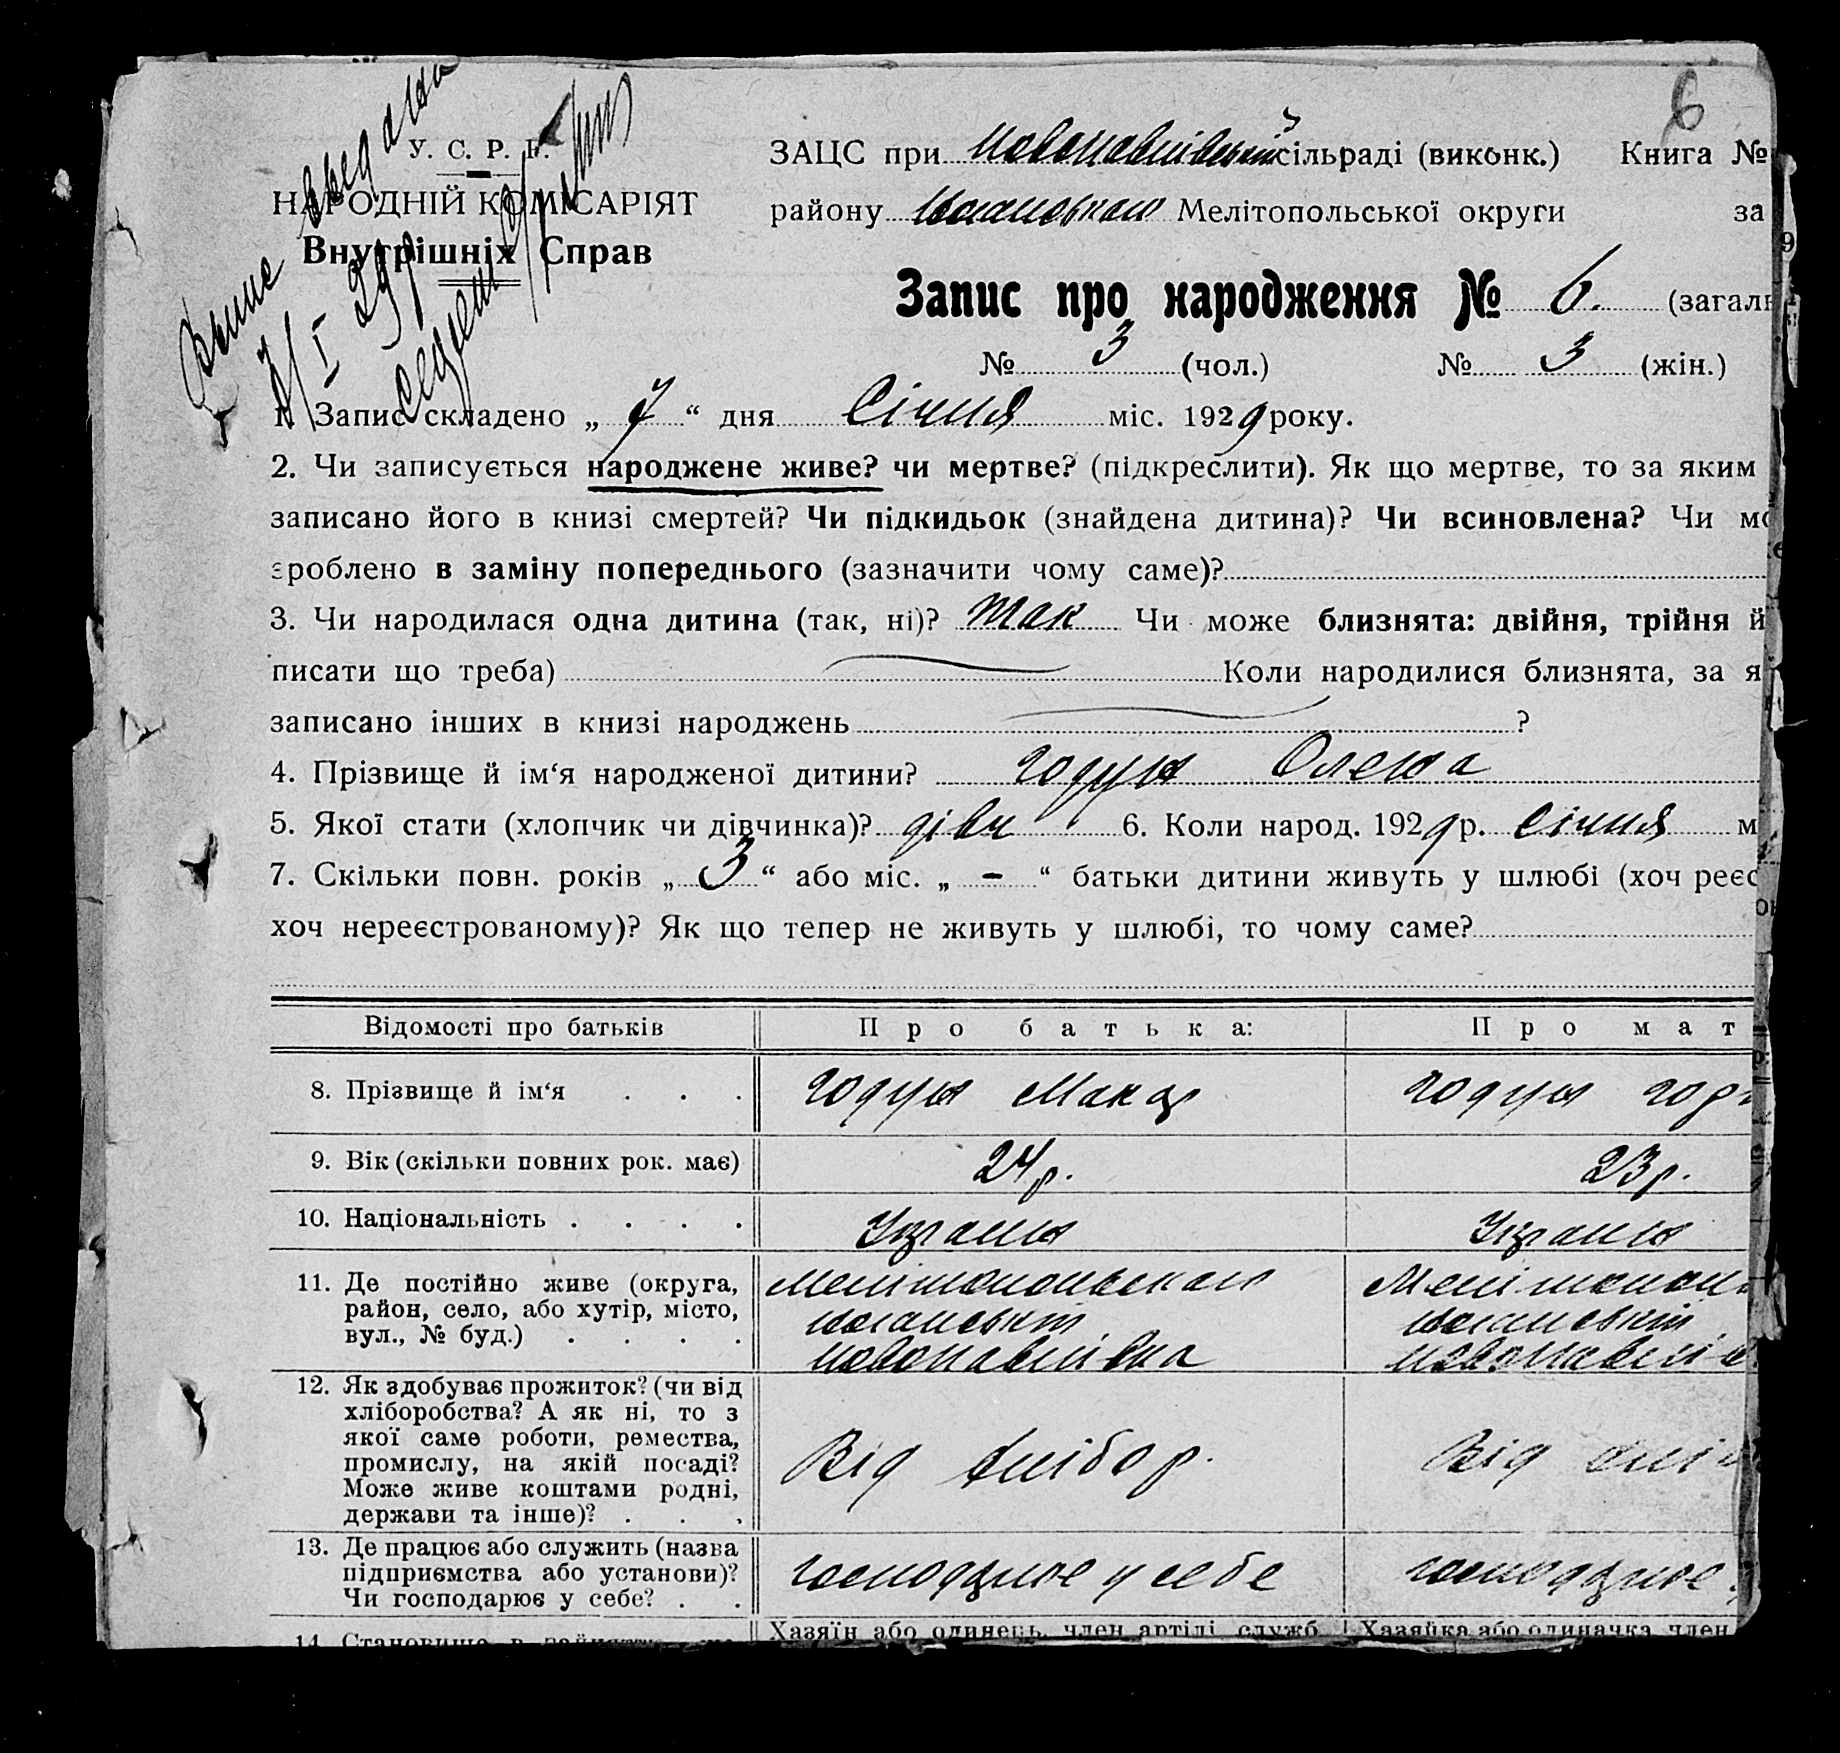 6
У. С. Р. Р.
НАРОДНІЙ КОМІСАРІЯТ
Внутрішніх Справ
ЗАЦС при Новопавлівській сільраді (виконк.) Книга №
району Мелітопольської округи за
Запис про народження № 6. (загальн
№ 3 (чол.) № 3 (жін.)
1. Запис складено „ 7 “ дня Січня міс. 1929 року.
2. Чи записується народжене живе? чи мертве? (підкреслити). Як що мертве, то за яким
записано його в книзі смертей? Чи підкидьок (знайдена дитина)? Чи всиновлена? Чи мо
зроблено в заміну попереднього (зазначити чому саме)?
3. Чи народилася одна дитина (так, ні)? Так Чи може близнята: двійня, трійня й
писати що треба) Коли народилися близнята, за я
записано інших в книзі народжень ?
4. Прізвище й ім‘я народженої дитини? Годун Олена
5. Якої стати (хлопчик чи дівчинка)? дівч 6. Коли народ. 1929 р. Січня м
7. Скільки повн. років „ 3 “ або міс. „ – “ батьки дитини живуть у шлюбі (хоч реєс
хоч нереєстрованому)? Як що тепер не живуть у шлюбі, то чому саме?
Відомості про батьків Про батька: Про мат
8. Прізвище й ім‘я . . . Годун Макар Годун
9. Вік (скільки повних рок. має) 24 р. 23 р.
10. Національність . . . . Українн Українн
11. Де постійно живе (округа,
район, село, або хутір, місто,
вул., № буд.) . . . .
Мелітопольская
Новопавлівка
Мелітопол
Новопавлів
12. Як здобуває прожиток? (чи від
хліборобства? А як ні, то з
якої саме роботи, ремества,
промислу, на якій посаді?
Може живе коштами родні,
держави та інше)? . . .
Від хлібор. Від хлі
13. Де працює або служить (назва
підприємства або установи)?
Чи господарює у себе? . .
господарює у себе господарює
14. Становище в
Хазяїн або одинець, член артілі, служб Хазяйка або одиначка член